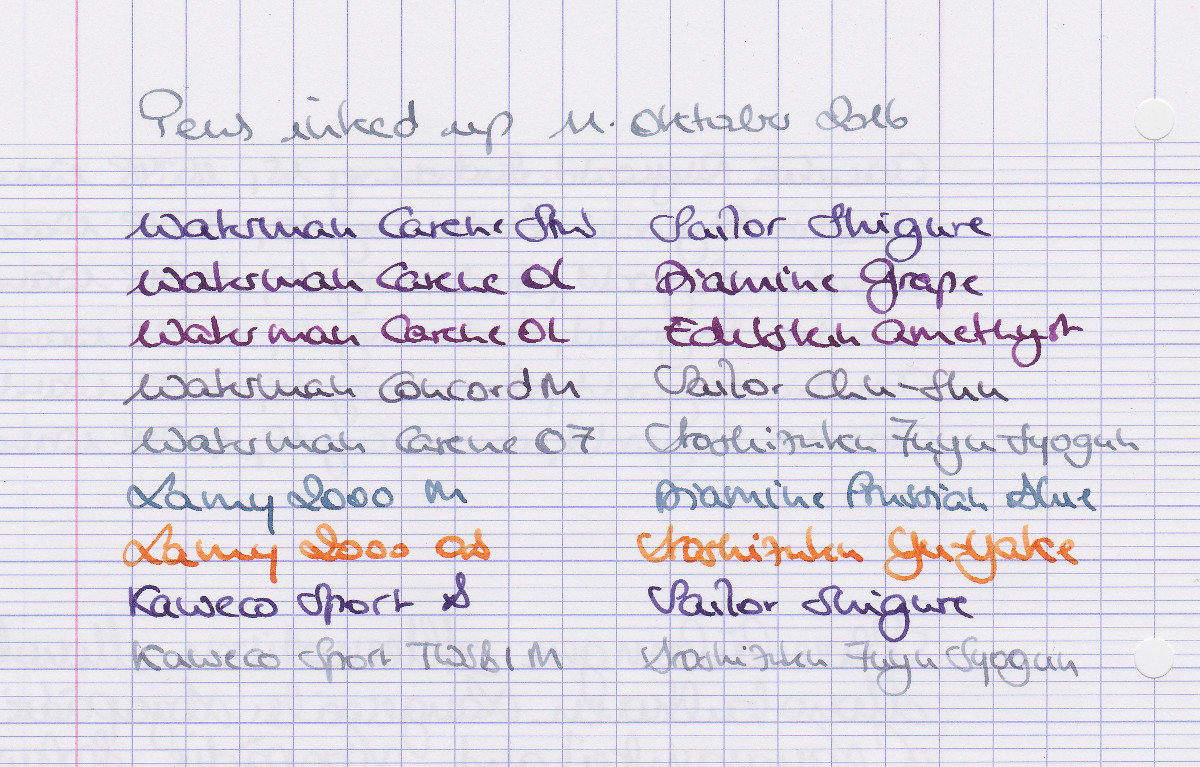 Pens inked up 11. Oktober 2016
Waterman Carene Stub Sailor Shigure
Waterman Carene OL Diamine Grape
Waterman Carene OL Edelstein Amethyst
Waterman Concord M Sailor Chu-Shu
Waterman Carene 07 Iroshizuku Fuyu-Syogun
Lamy 2000 M Diamine Prussian Blue
Lamy 2000 OB Iroshizuku Yu-Yake
Kaweco Sport B Sailor Shigure
Kaweco Sport TWSBI M Iroshizuku Fuyu Syogun